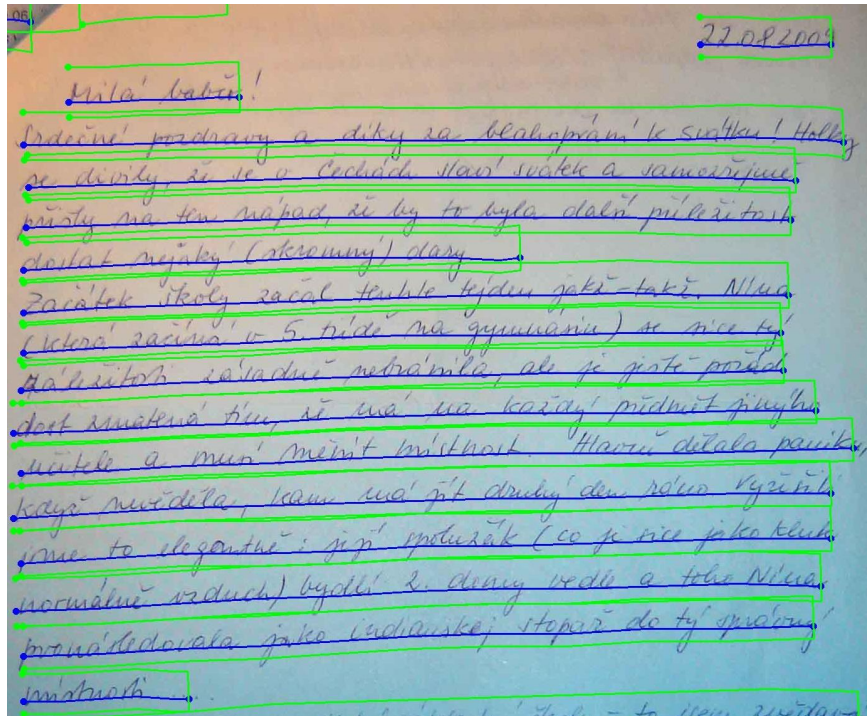 06
22.08.2009
Milá babčo!
Srdečné pozdravy a díky za blahopřání k svátku! Holky
se divily, že se v Čechách slaví svátek a samozřejmě
přišly na ten nápad, že by to byla další příležitost
dostat nějaký (skromný) dary
Začátek školy začal tenhle tejden jakž-takž. Nina
(která začíná v 5. třídě na gymnásiu) se sice tý
záležitosti zásadně nebránila, ale je ještě pořád
dost zmatená tím, že má na každý předmět jinýho
učitele a musí měnit místnost. Hlavně dělala paniku,
když nevěděla, kam má jít druhý den ráno Vyřešili
jsme to elegantně: její spolužák (co je sice jako kluk
normálně vzduch) bydlí 2. domy vedle a toho Nina
pronásledovala jako indiánskej stopař do tý správný
místnosti ...
to jsem zvědava